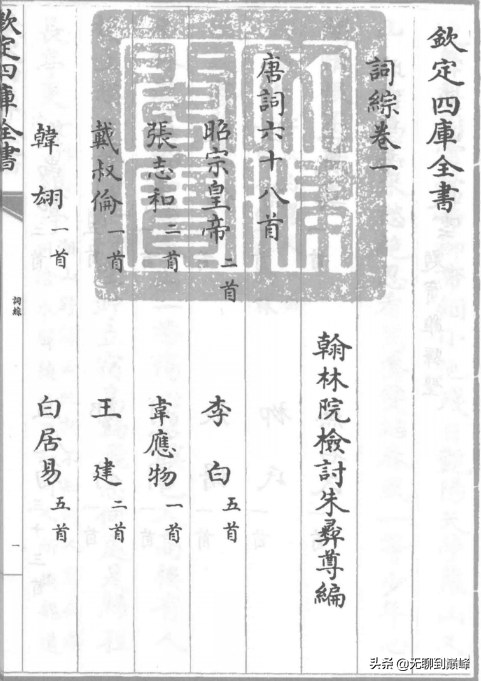 欽定四庫全書
詞綜卷一
翰林院檢討朱彞尊編
唐詞六十八首
昭宗皇帝二首 李白五首
張志和二首 韋應物一首
戴叔倫一首 王建二首
韓翃一首 白居易五首
詞綜
一
欽定四庫全書
头条 @无聊到巅峰